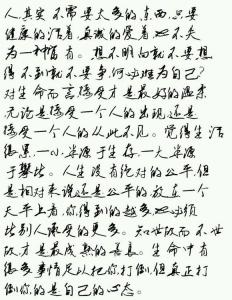 人,其实不需要太多的东西,只要
健康的活着,真诚的爱着也不失
为一种富有。想不明白就不要想
得不到就不要争,何必难为自己?
对生命而言接受才是最好的温柔
无论是接受一个人的出现,还是
接受一个人的从此不见。觉得生活
得累,一小半源于生存,一大半源
于攀比。人生没有绝对的公平但
是相对来说还是公平的,放在一个
天平上看,你得到的越多也必须
比别人承受的更多。知世故而不世
故才是最成熟的善良。生命中有
很多事情足以把你打倒,但真正打
倒你的是自己的心态。